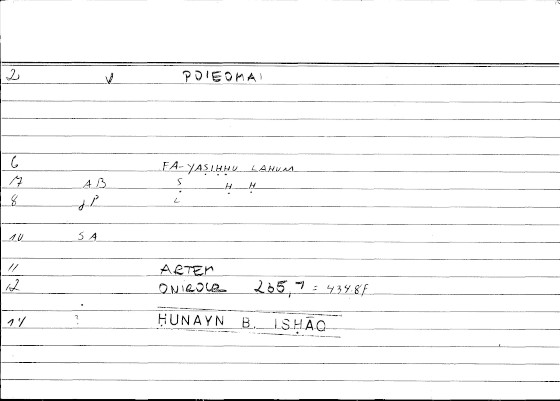 2 v POIEOMAI
6 FA-YAṢIḤḤU LAHUM
17 AB Ṣ Ḥ Ḥ
8 JP i
10 SA
11 ARTEM
12 ONIROCR 265,7 = 434.8f
14 ? ḤUNAYN B. ISḤĀQ